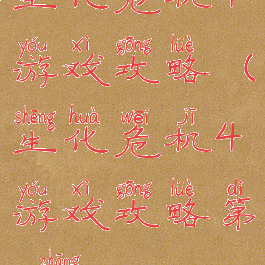 生化危机
yóu xì gōng lüè
游戏攻略（
shēng huà wēi jī
生化危机4
yóu xì gōng lüè dì
游戏攻略第
zhāng